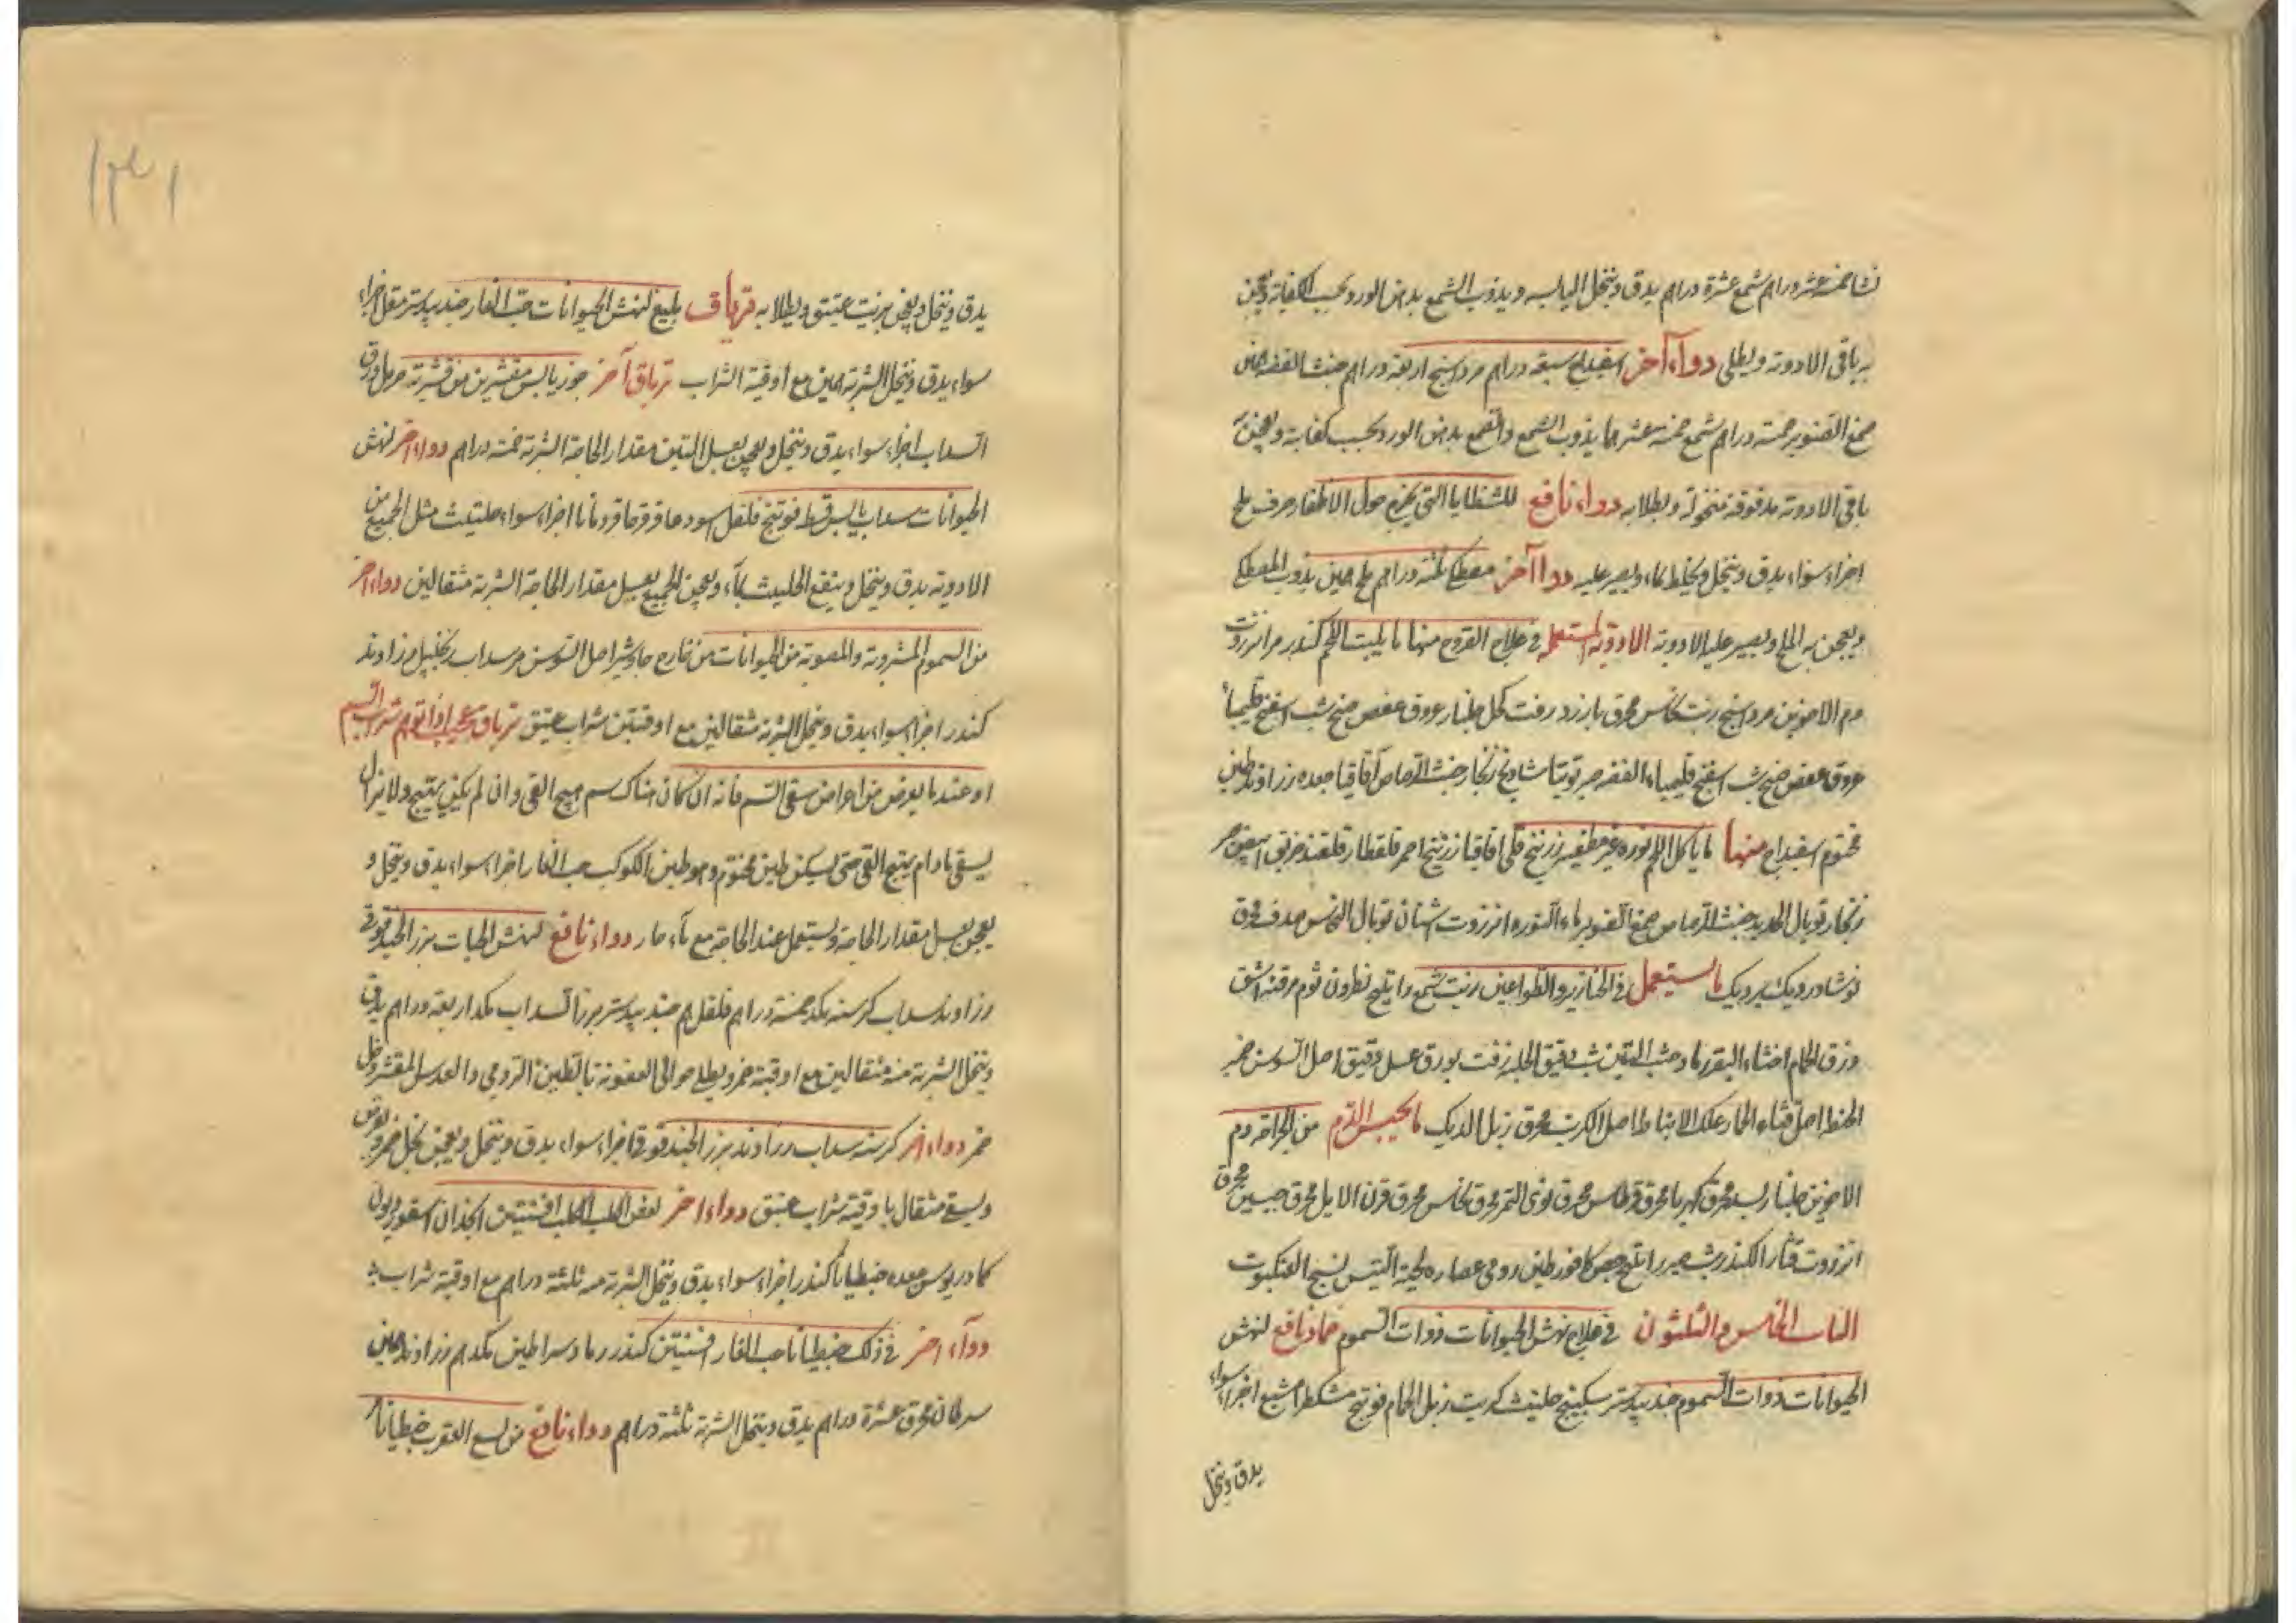 نشا خمسة عشر دراهم شمع عشرة دراهم يدق وينخل اليابسه ويذوب الشمع بدهن الورد بحسب الكفاية ويعجن
به باقى الادوية ويطلى دواء آخر اسفيداج سبعة دراهم مرداسنج اربعة دراهم خبث الفضه
صمغ الصنوبر خمسة دراهم شمع خمسة عشر درهما يذوب الشمع والصمغ بدهن الورد بحسب كفاية ويعجن به
باقى الادوية مدقوقة منخولة ويطلا به دواء نافع للشظايا التى يخرج حول الاظفار حرف ملح
اجزاء سواء يدق وينخل ويخلط بماء ويصير عليه دواء آخر مصطكى ثلثة دراهم ملح يذوب المصطكى
ويعجن به الملح ويصير عليه الادوية الادوية المستعملة فى علاج القروح منها ما ينبت اللحم كندر مر انزروت
دم الاخوين مرداسنج زفت نحاس محرق بارزد زفت كحل جلنار عروق عفص صبر شب اسفنج قليميا
عروق عفص شب اسفنج قليمياء الفضه صبر توتيا شادنج زنجار خبث الرصاص اقاقيا جعده زراوند طين
مختوم اسفيداج منها ما ياكل اللحم نوره غير مطفيه زرنيخ قلى اقاقيا زرنيخ احمر قلقطار قلقند خربق اسود
زنجار توبال الحديد خبث الرصاص صمغ الصنوبر ماء النوره انزروت اشنان توبال النحاس صدف محرق
نوشادر ديك برديك ما يستعمل فى الخنازير والطواعين زيت شمع راتينج نطرون ثوم مرقشه اشق
وزق الحمام اخثاء البقر رماد خشب التين شب دقيق الحلبه زفت بورق عسل دقيق اصل السوسن خمير
الحنطه اصل قثاء الحمار علك الانباط اصل الكرنب محرق زبل الديك ما يحبس الدم من الجراحه دم
الاخوين جلنار بسد محرق كهربا محرق قرطاس محرق نوى التمر محرق نحاس محرق قرن الايل محرق جبسين محرق
انزروت قشار الكندر شب صبر راتينج جص كافور طين رومى عصاره لحية التيس نسج العنكبوت
الباب الخامس والثلثون فى علاج نهش الحيوانات ذوات السموم ضماد نافع لنهش
الحيوانات ذوات السموم جندبيدستر سكبينج حلتيت كبريت زبل الحمام فوتنج مشكطرامشيع اجزاء سواء
يدق وينخل
١٣٤١
يدق وينخل ويعجن بزيت عتيق ويطلا به ترياق بليغ لنهش الحيوانات حب الغار جندبيدستر مقل اجزاء
سواء يدق وينخل الشربة درهمين مع اوقية الشراب ترياق آخر جوز يابس مقشر من قشرته حرمل ورق
السداب اجزاء سواء يدق وينخل ويعجن بعسل التين مقدار الحاجة الشربة خمسة دراهم دواء اخر لنهش
الحيوانات سداب يابس قسط فوتنج فلفل اسود عاقرقرحا قردمانا اجزاء سواء حلتيت مثل الجميع من
الادوية يدق وينخل وينقع الحلتيت بماء ويعجن الجميع بعسل مقدار الحاجة الشربة مثقالين دواء اخر
من السموم المشروبة والمصوبة من الحيوانات من خارج جاوشير اصل السوسن مر سداب زنجبيل زراوند
كندر اجزاء سواء يدق وينخل الشربة مثقالين مع اوقيتين شراب عتيق ترياق عجيب اذا توهم شراب السم
او عندما يعرض من اعراض سقى السم فانه ان كان هناك سم هيج القى وان لم يكن لم يهيج ولا يزال
يسقى ما دام يهيج القى حتى يسكن طين مختوم وهو طين الكوكب حب الغار اجزاء سواء يدق وينخل و
يعجن بعسل مقدار الحاجة ويستعمل عند الحاجة مع ماء حار دواء نافع لنهش الحيات بزر الحندقوقى
زراوند سداب كرسنه مكد خمسة دراهم فلفل مر جندبيدستر بزر السداب مكد اربعة دراهم يدق
وينخل الشربة منه مثقالين مع اوقية خمر ويطلى حوالى العضونة بالطين الرومى والعدس المقشر وخل
خمر دواء اخر كرسنه سداب زراوند بزر الحندقوقى اجزاء سواء يدق وينخل ويعجن بخل خمر ويقرص
ويسقى مثقال باوقية شراب عتيق دواء اخر لعض الكلب الكلب افسنتين انجدان اسقورديون
كمادريوس جعده جنطيانا كندر اجزاء سواء يدق وينخل الشربة منه ثلثة دراهم مع اوقية شراب
دواء اخر فى ذلك جنطيانا حب الغار افسنتين كندر رماد سراطين مكد درهم زراوند درهمين
سرطان محرق عشرة دراهم يدق وينخل الشربة ثلثة دراهم دواء نافع من لسع العقرب جنطيانا